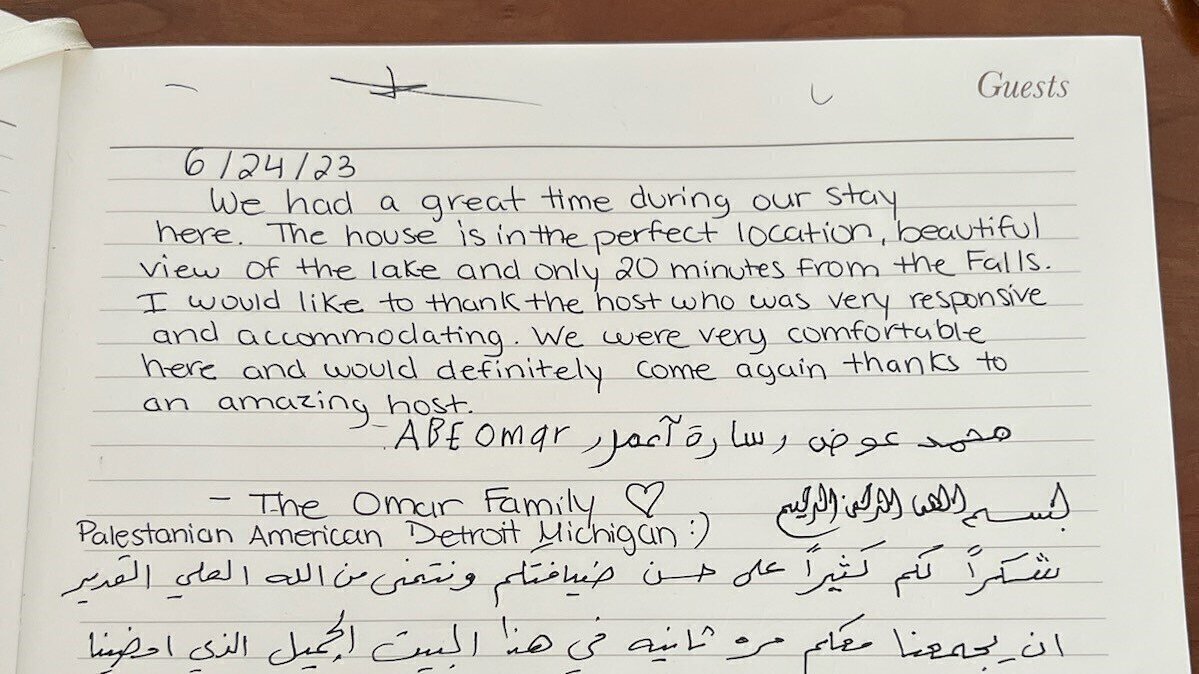 Guests
6/24/23
We had a great time during our stay
here. The house is in the perfect location, beautiful
view of the lake and only 20 minutes from the Falls.
I would like to thank the host who was very responsive
and accommodating. We were very comfortable
here and would definitely come again thanks to
an amazing host.
- ABE Omar محمد عوض سارة
- The Omar Family ♡
بسم الله الرحمن الرحيم
Palestanian American Detroit Michigan :)
شكراً لكم كثيراً على حسن ضيافتكم ونتمنى من الله العلي القدير
ان يجمعنا معكم مره ثانيه في هذا البيت الجميل الذي امضينا